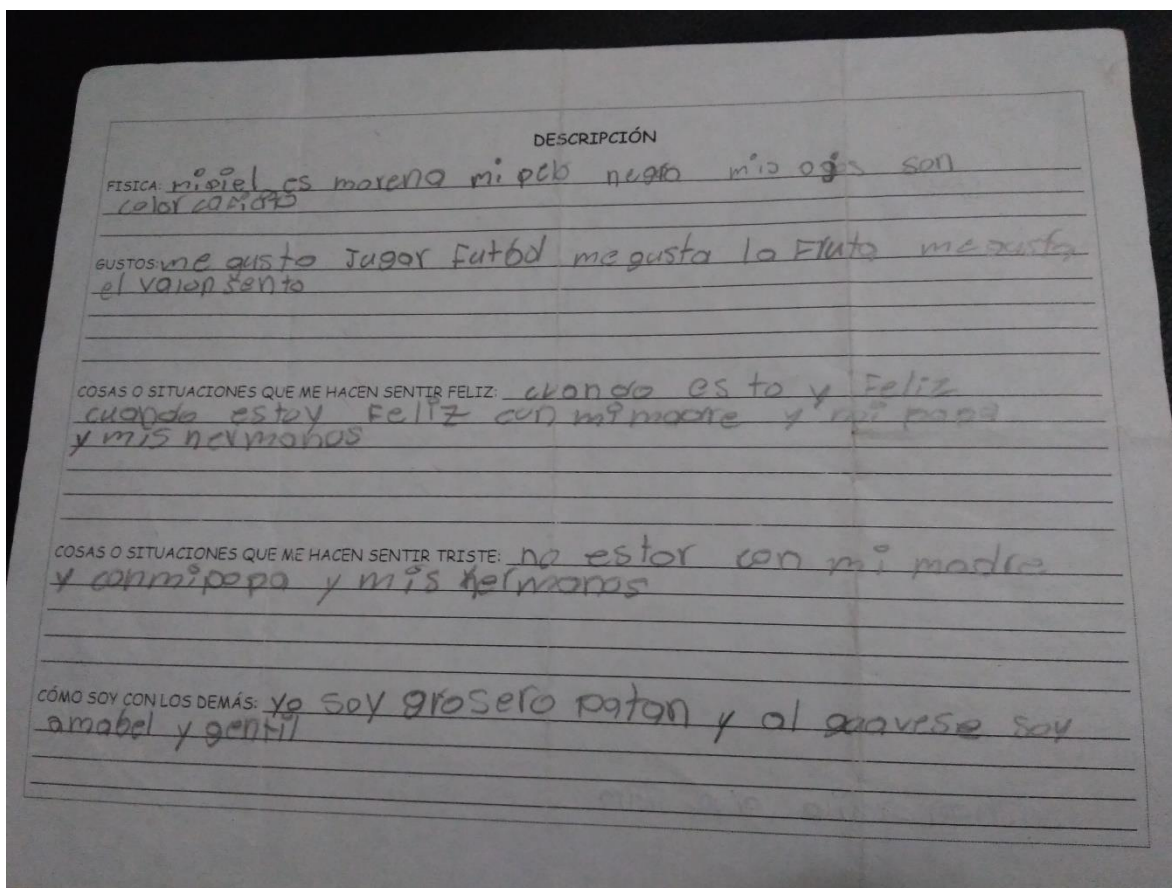 DESCRIPCIÓN
FISICA: mi piel es morena mi pelo negro mis ojos son
color
GUSTOS: me gusto Jugar Futbol me gusta la Fruta me gusta
el
COSAS O SITUACIONES QUE ME HACEN SENTIR FELIZ: cuando es to y Feliz
cuando estoy Feliz con mi madre y mi papa
y mis hermanos
COSAS O SITUACIONES QUE ME HACEN SENTIR TRISTE: no estor con mi madre
y conmipapa y mis hermanos
CÓMO SOY CON LOS DEMÁS: yo soy grosero patan y al soy
amabel y gentil